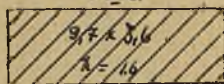 9,7 x 3,6
h = 1.6